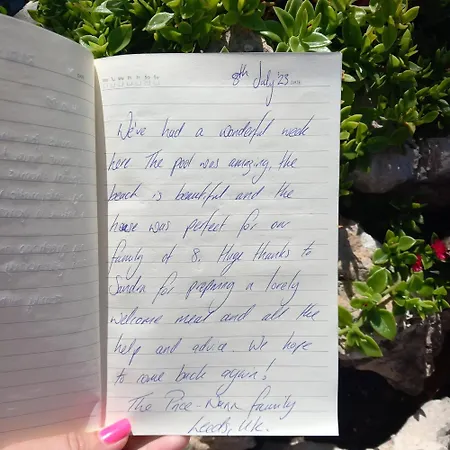 8th July '23
We've had a wonderful week
here. The pool was amazing, the
beach is beautiful and the
house was perfect for our
family of 8. Huge thanks to
Sandra for preparing a lovely
welcome meal and all the
help and advice. We hope
to come back again!
The Price-Nunn family
Leeds, UK.